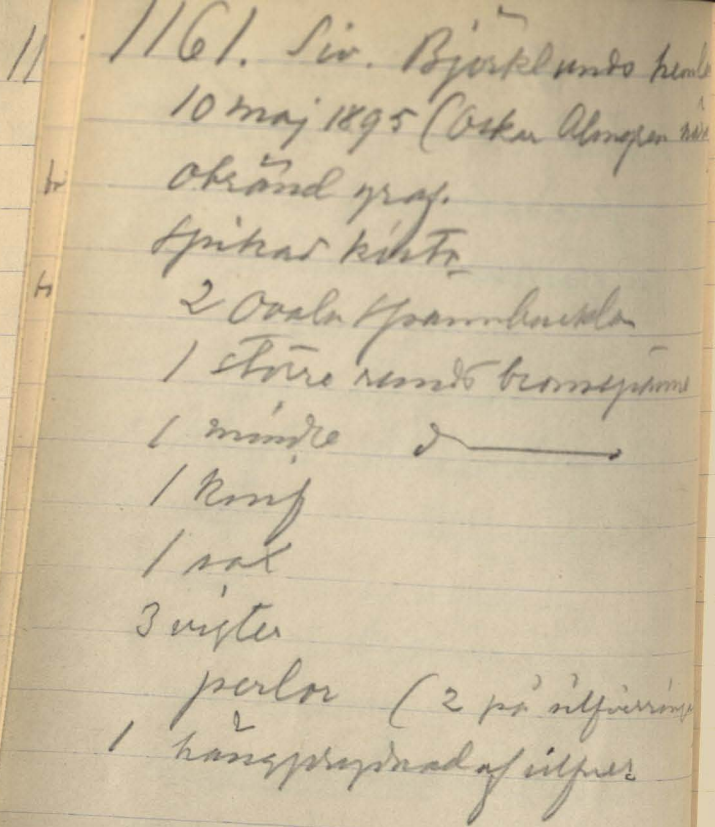 1161. Siv. Björklunds hemle
10 maj 1895 (Oskar Almgren när
obränd graf.
Spikad kista
2 ovala spännbucklor
1 större rund bronsspänne
1 mindre d——
1 knif
1 sax
3 vigter
perlor (2 på silfverringe
1 hängprydnad af silfver